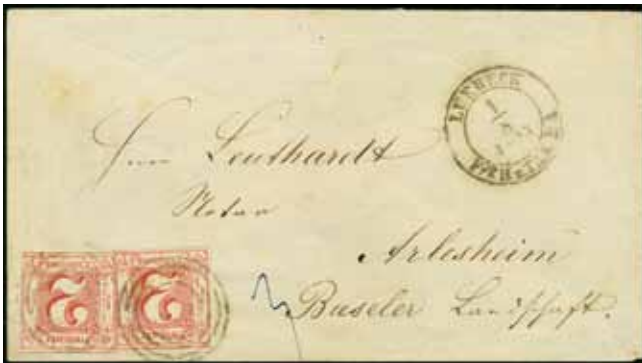 LUEBECK
Herr Leuthardt
Notar
Arlesheim
Baseler Landschaft.
2 2